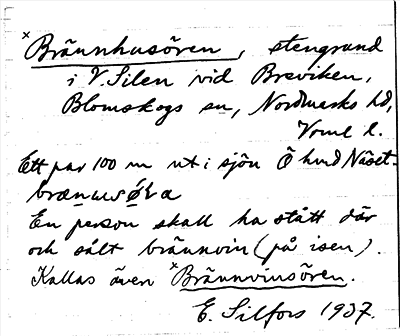 ×Brännhusören, stengrund
i V. Silen vid Breviken,
Blomskogs sn, Nordmarks hd,
Vrml l.
Ett par 100 m ut i sjön Ö
Näset.
En person skall ha stått där
och sålt brännvin (på isen).
Kallas även ×Brännvinsören.
E. Silfors 1937.